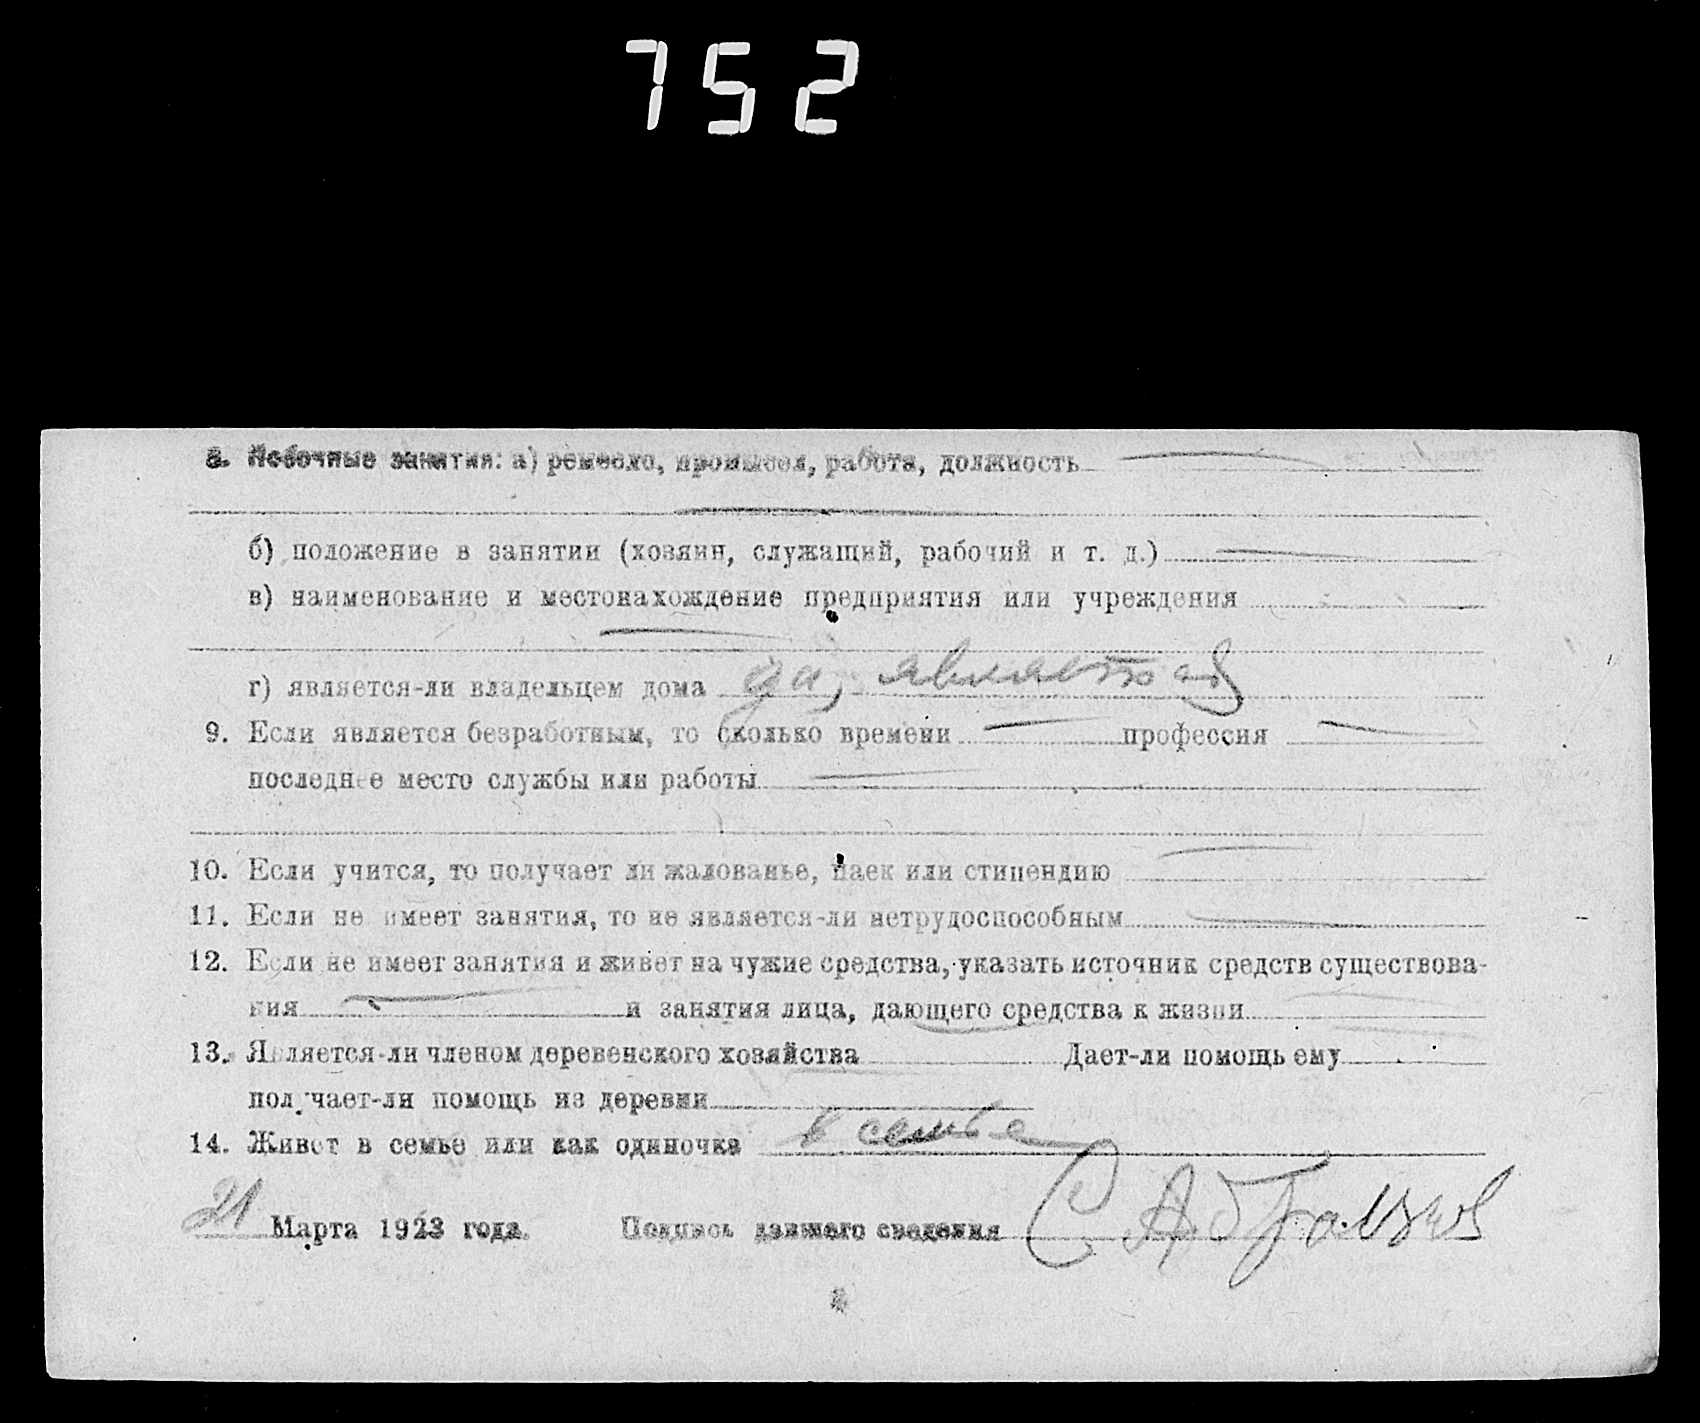 752
8. Побочные занятия: а) ремесло, промысел, работа, должность
б) положение в занятии (хозяин, служащий, рабочий и т. д.)
в) наименование и местонахождение предприятия или учреждения
г) является-ли владельцем дома да, является
9. Если является безработным, то сколько времени профессия
последнее место службы или работы
10. Если учится, то получает ли жалованье, паек или стипендию
11. Если не имеет занятия, то не является-ли нетрудоспособным
12. Если не имеет занятия и живет на чужие средства, указать источник средств существова-
ния и занятия лица, дающего средства к жизни
13. Является-ли членом деревенского хозяйства Дает-ли помощь ему
получает-ли помощь из деревни
14. Живет в семье или как одиночка в семье
21 Марта 1923 года. Подпись давшего сведения С